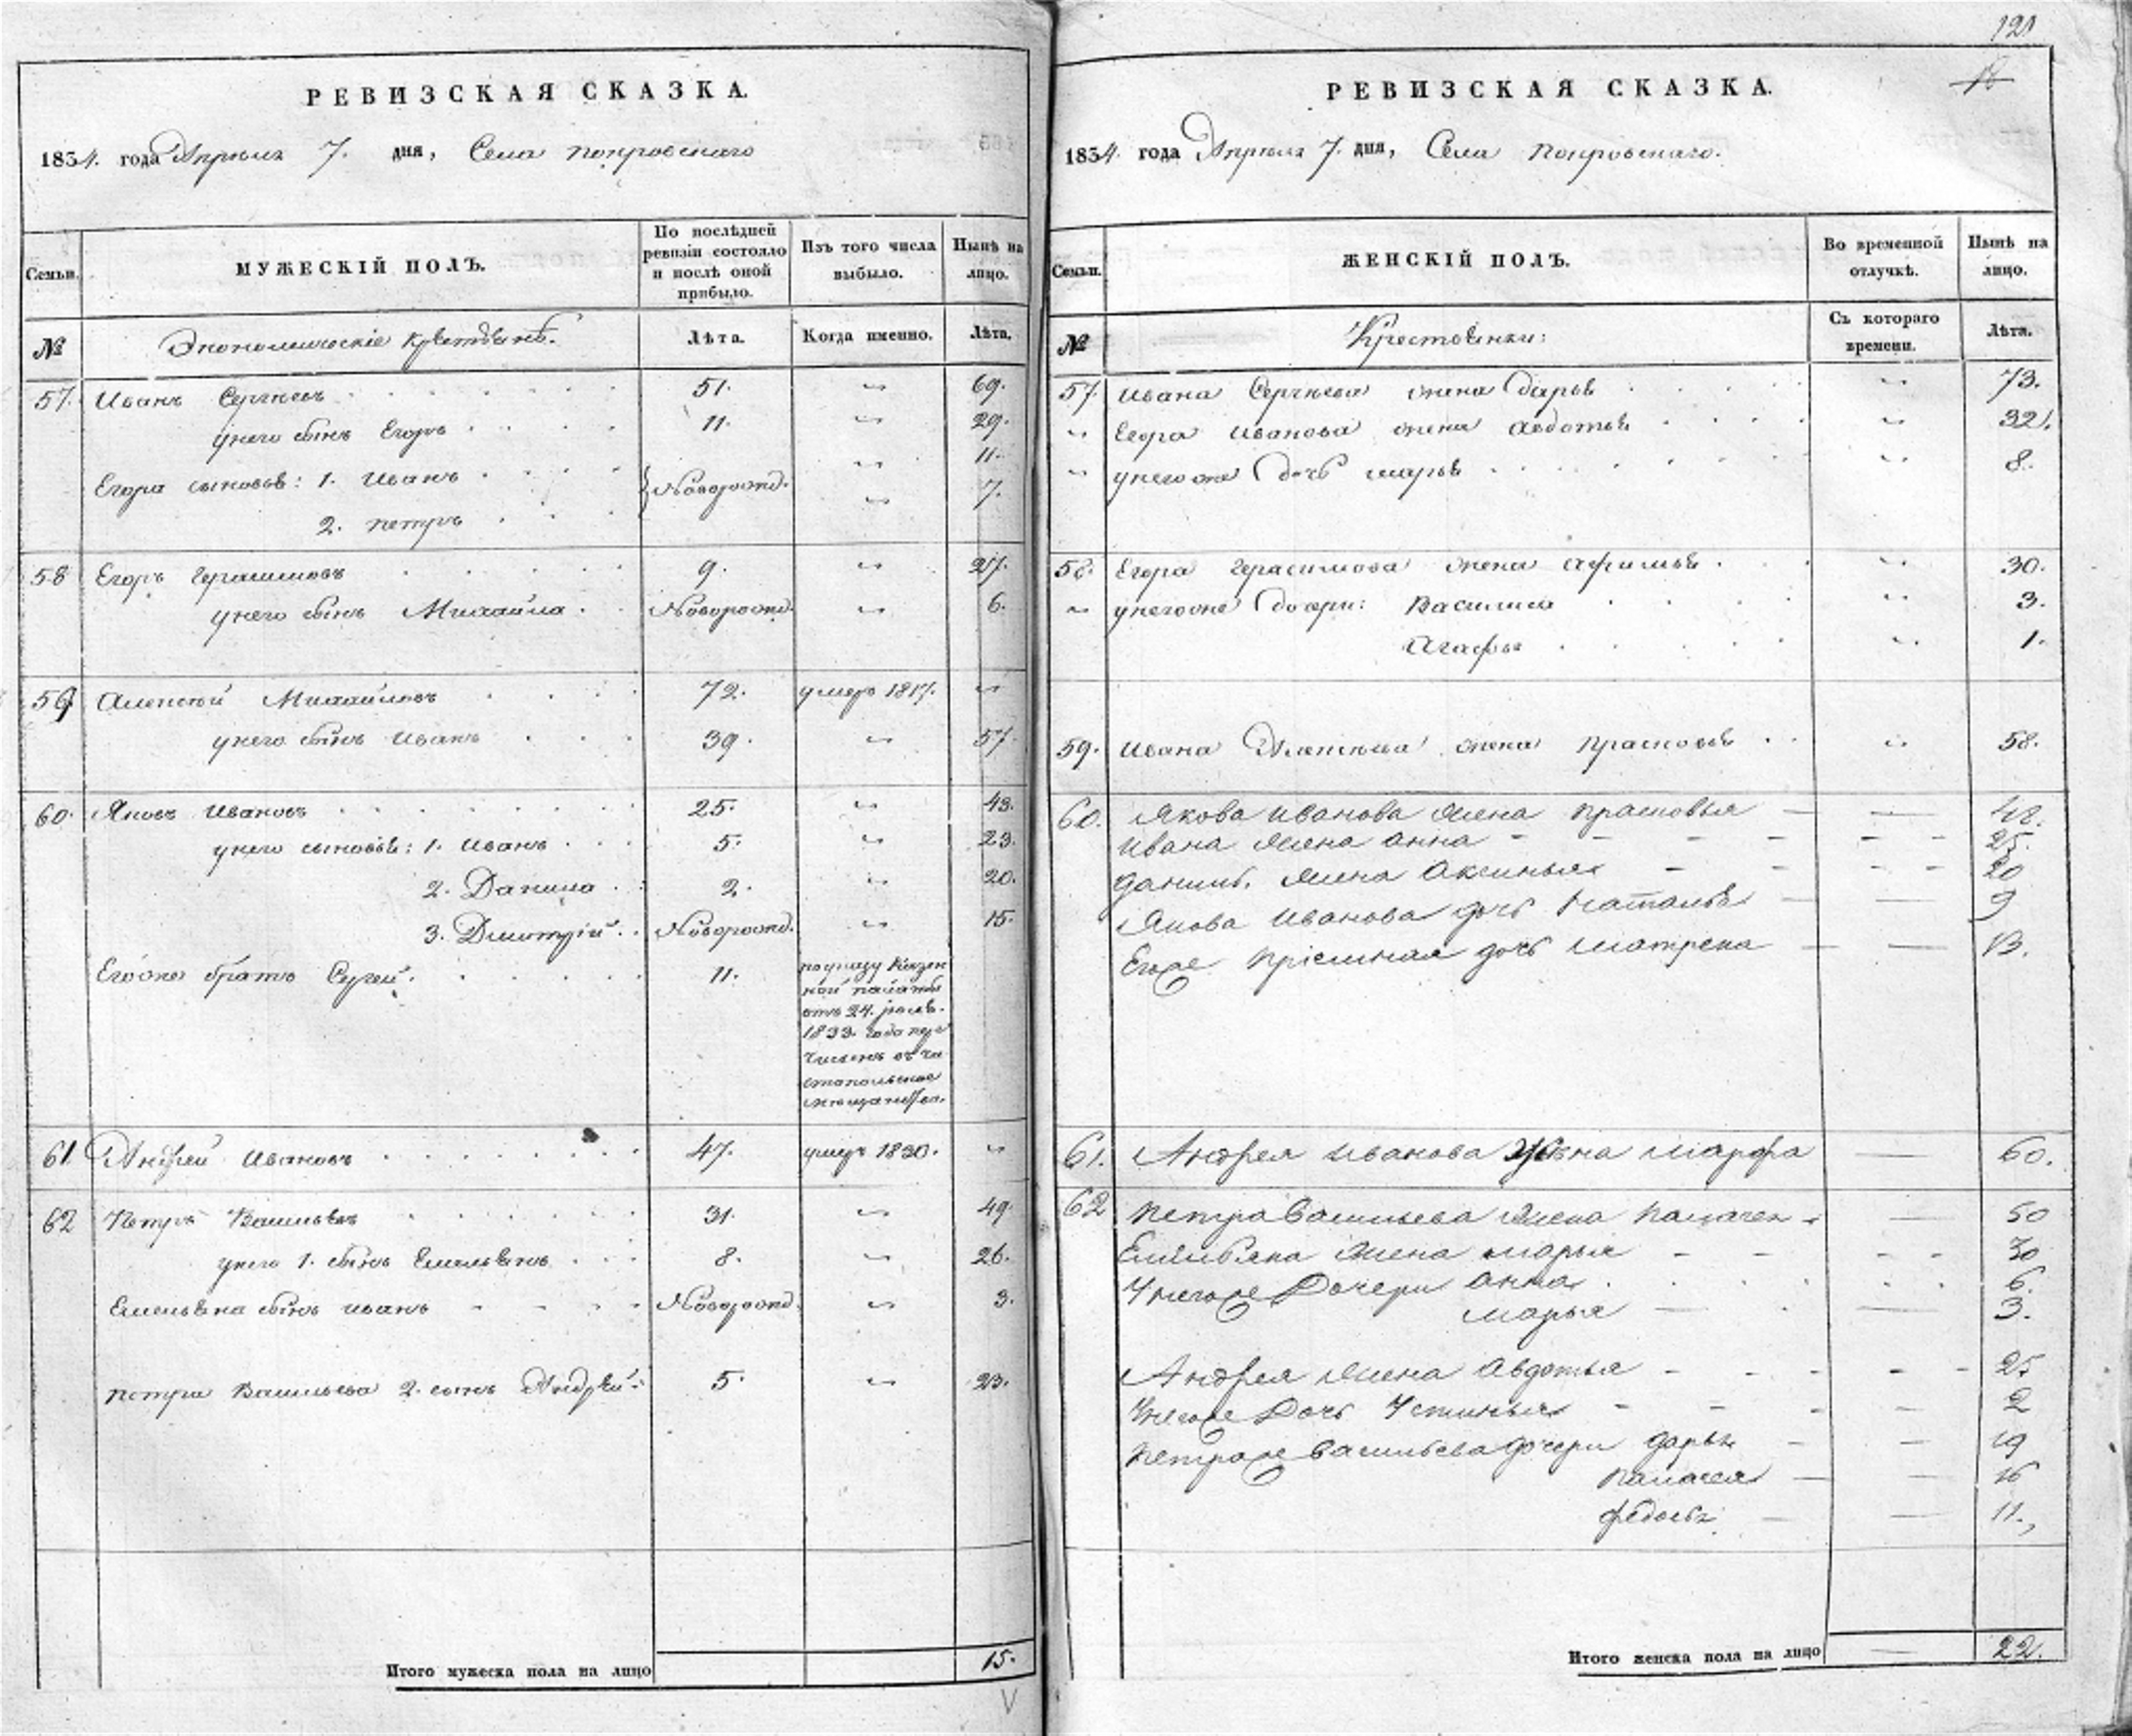 РЕВИЗСКАЯ СКАЗКА.
1834. года Апреля 7. дня, Села Покровскаго
Семьи.
МУЖЕСКІЙ ПОЛЪ.
По послѣдней ревизіи состояло и послѣ оной прибыло.
Изъ того числа выбыло.
Нынѣ на лицо.
№
Экономическіе крестьянѣ.
Лѣта.
Когда именно.
Лѣта.
57. Иванъ Сергѣевъ 51. 69.
унего сынъ Егоръ 11. 29.
Егора сыновья: 1. Иванъ Новорожд. 11.
2. Петръ 7.
58 Егоръ Герасимовъ 9. 27.
унего сынъ Михайла Новорожд. 6.
59 Алексѣй Михайловъ 72. умеръ 1817.
унего сынъ Иванъ 39. 57.
60. Яковъ Ивановъ 25. 43.
унего сыновья: 1. Иванъ 5. 23.
2. Данила 2. 20.
3. Дмитрій Новорожд. 15.
Егоже братъ Сергей 11. поуказу Казен
ной палаты
отъ 24.
1833. года пере
численъ въ чи
стопольское
мещанство.
61 Андрей Ивановъ 47. умеръ 1830.
62 Петръ Васильевъ 31. 49.
унего 1. сынъ Емельянъ 8. 26.
Емельяна сынъ Иванъ Новорожд. 3.
Петра Васильева 2. сынъ Андрей 5. 23.
Итого мужеска пола на лицо 15.
121
РЕВИЗСКАЯ СКАЗКА.
1834. года Апреля 7. дня, Села Покровскаго.
Семьи.
ЖЕНСКІЙ ПОЛЪ.
Во временной отлучкѣ.
Нынѣ на лицо.
№
Крестьянки:
Съ котораго времени.
Лѣта.
57. Ивана Сергѣева жена Дарья 73.
Егора Иванова жена Авдотья 32.
унегоже дочь Марья 8.
58. Егора Герасимова жена Афимья 30.
унегоже дочери: Василиса 3.
Агафья 1.
59. Ивана Алексѣева жена Прасковья 58.
60. Якова Иванова жена Прасковья 42.
Ивана жена Анна 25.
Данилы жена Аксинья 20
Якова Иванова дочь Наталья 9
Егоже Пріемная дочь Матрена 13.
61. Андрея Иванова жена Марфа 60.
62 Петра Васильева жена Палагея 50
Емельяна жена Марья 30
Унегоже Дочери Анна 6.
Марья 3.
Андрея жена Авдотья 25
Унегоже Дочь Устинья 2
Петраже Васильева дочери Дарья 19
Палагея 16
Федосья 11.
Итого женска пола на лицо 22.